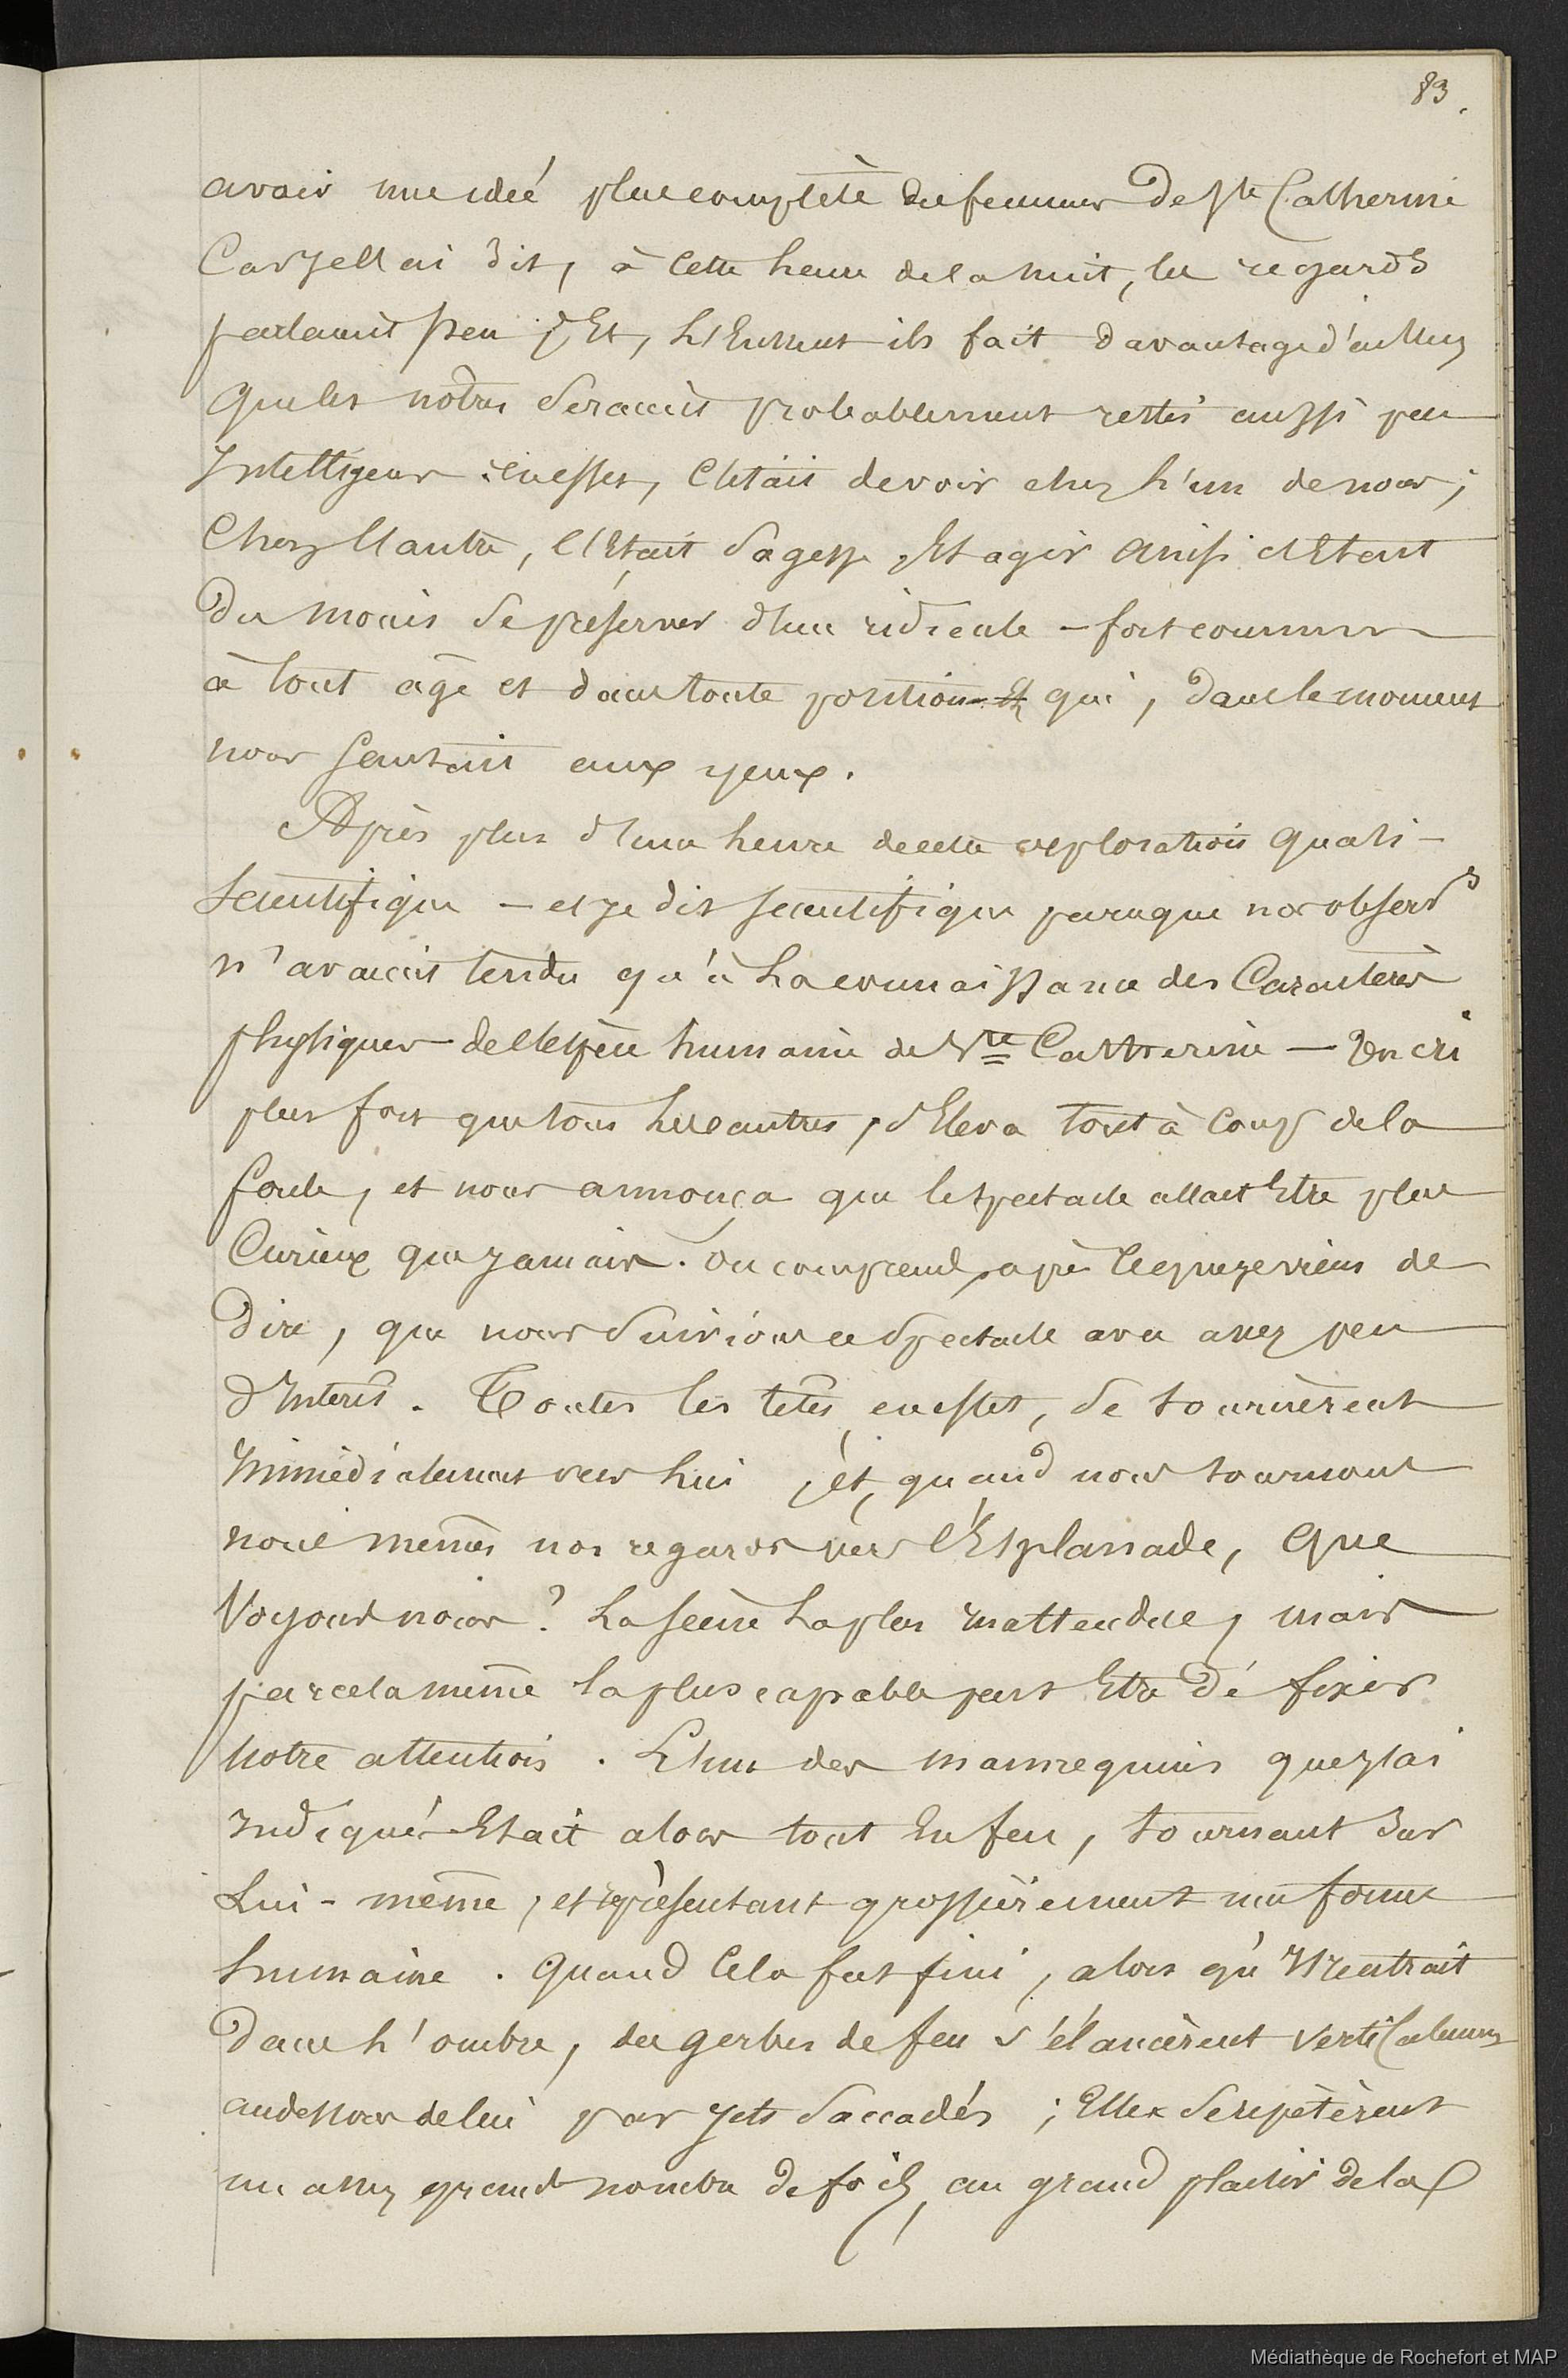 83.
avoir une idée plus complète des femmes de Ste Catherine
Car je l'ai dit, à cette heure de la nuit, les regards
parlaient peu ; Et, l'Eussent ils fait davantage d'ailleurs
que les notres seraient probablement restés aussi peu
Intelligens : en effet, C'était devoir chez l'un de nous ;
Chez l'autre, c'Etait sagesse, Et agir ainsi c'Etait
Du moins se préserver d'un ridicule – fort commun
à tout âge et dans toute position – et qui, dans le moment
nous sautait aux yeux.
Après plus d'une heure de cette exploration quasi-
scientifique – et je dis scientifique parce que nos observs
n'avaient tendu qu'à la connaissance des Caractères
physiques de l'espèce humaine de Ste Catherine – Un cri
plus fort que tous les autres, s'Eleva tout à coup de la
foule, et nous annonça que le spectacle allait Etre plus
Curieux que jamais. On comprend, après ce que je viens de
Dire, que nous suivions ce Spectacle avec assez peu
d'Interêt. Toutes les têtes, en effet, se tournèrent
Immédiatement vers lui ; et, quand nous tournons
nous mêmes nos regards vers l'Esplanade, que
Voyons nous ? La scène la plus inattendue, mais
par cela même la plus capable peut Etre de fixer
notre attention. L'un des mannequins que j'ai
Indiqué Etait alors tout En feu, tournant sur
Lui-même, et représentant grossièrement une forme
humaine. Quand cela fut fini, alors qu'Il rentrait
Dans l'ombre, des gerbes de feu s'élancèrent verticalement
au dessus de lui par jets saccadés ; Elles se répétèrent
un assez grand nombre de fois, au grand plaisir de la
Médiathèque de Rochefort et MAP